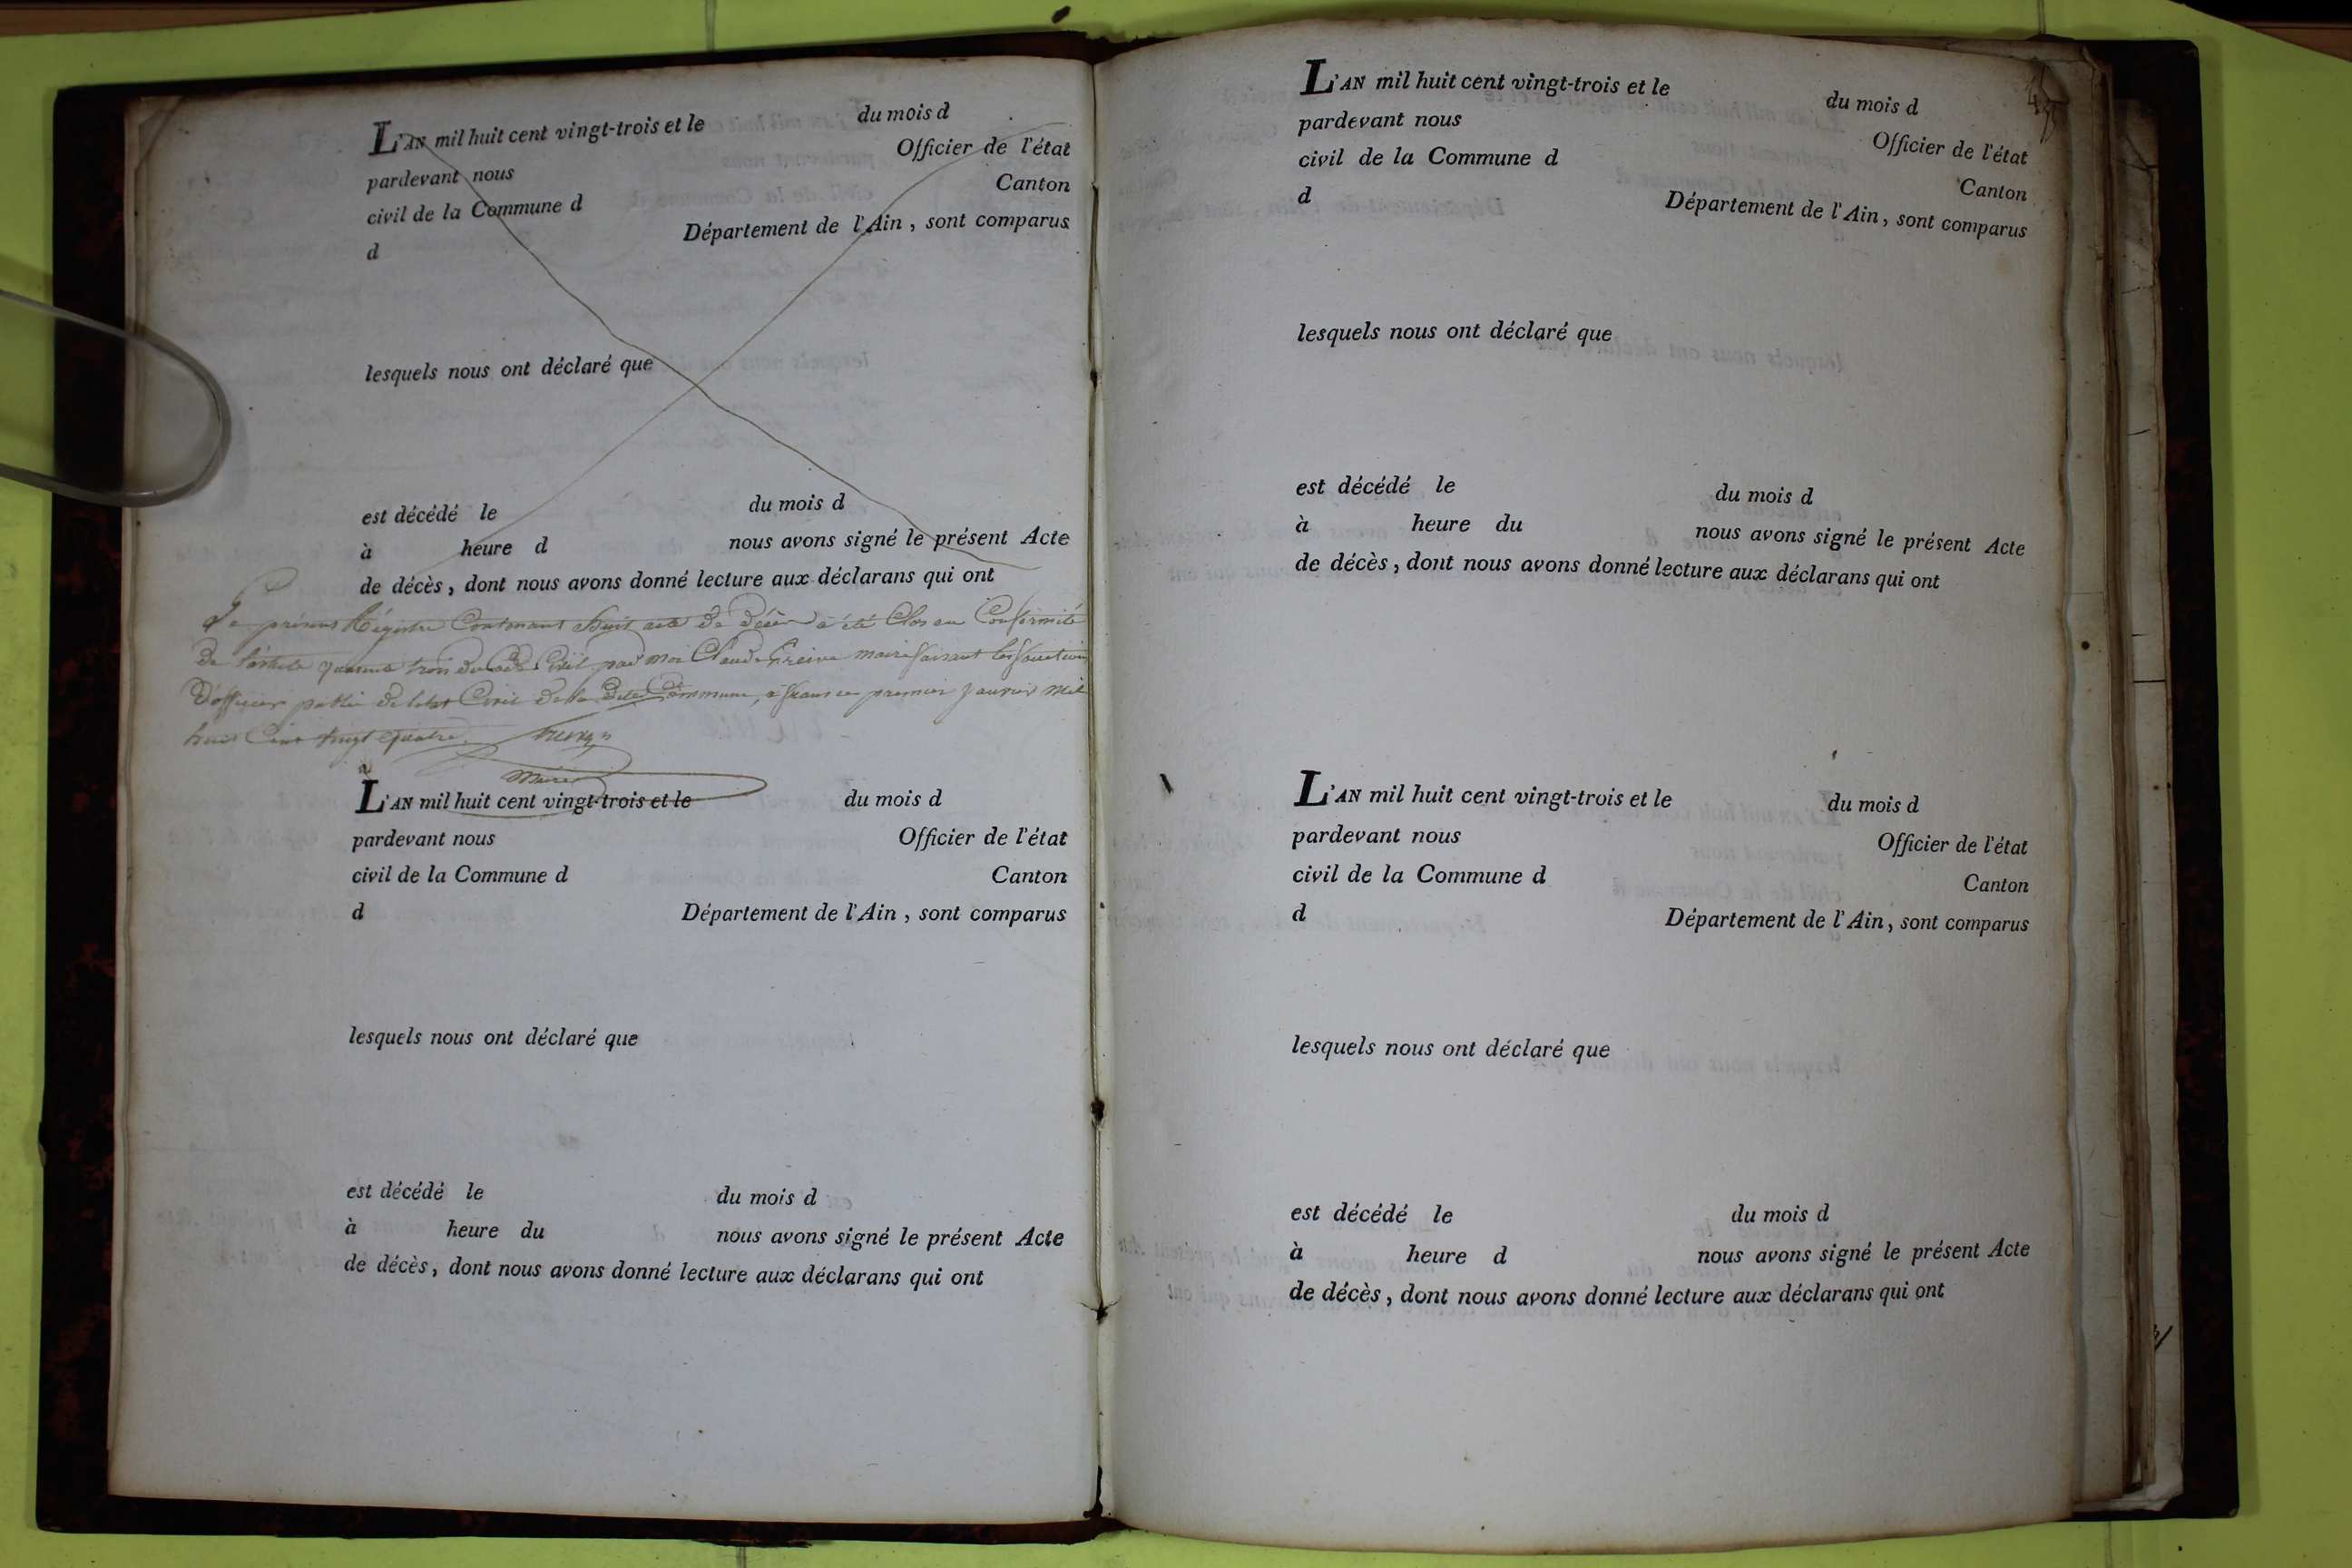 L'AN mil huit cent vingt-trois et le du mois d
pardevant nous Officier de l'état
civil de la Commune d Canton
d Département de l'Ain, sont comparus
lesquels nous ont déclaré que
est décédé le du mois d
à heure d nous avons signé le présent Acte
de décès, dont nous avons donné lecture aux déclarans qui ont
Le présent Régistre Contenant huit acte de Décès a été Clos en Conformité
De l'article quarante trois du Code Civil par moi Claude maire faisant les fonctions
D'officier public De l'etat Civil De la Dite Commune, ce premier Janvier Mil
huit Cent vingt quatre
Maire
L'AN mil huit cent vingt-trois et le du mois d
pardevant nous Officier de l'état
civil de la Commune d Canton
d Département de l'Ain, sont comparus
lesquels nous ont déclaré que
est décédé le du mois d
à heure du nous avons signé le présent Acte
de décès, dont nous avons donné lecture aux déclarans qui ont
L'AN mil huit cent vingt-trois et le du mois d
pardevant nous Officier de l'état
civil de la Commune d Canton
d Département de l'Ain, sont comparus
lesquels nous ont déclaré que
est décédé le du mois d
à heure du nous avons signé le présent Acte
de décès, dont nous avons donné lecture aux déclarans qui ont
L'AN mil huit cent vingt-trois et le du mois d
pardevant nous Officier de l'état
civil de la Commune d Canton
d Département de l'Ain, sont comparus
lesquels nous ont déclaré que
est décédé le du mois d
à heure d nous avons signé le présent Acte
de décès, dont nous avons donné lecture aux déclarans qui ont